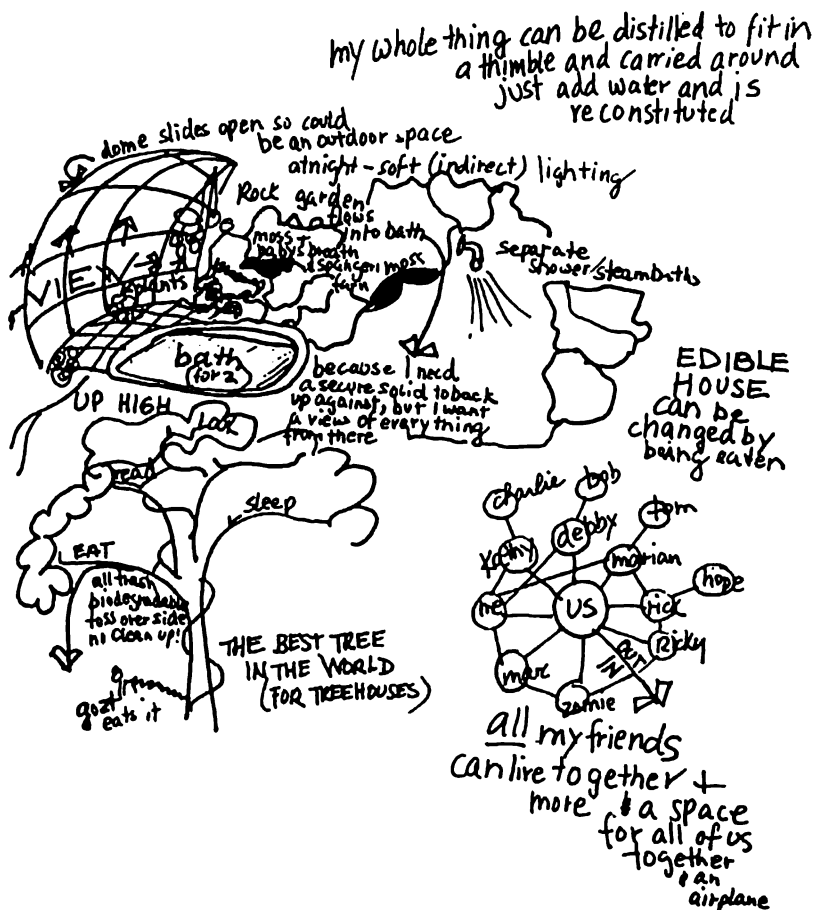 my whole thing can be distilled to fit in
a thimble and carried around
just add water and is
reconstituted
dome slides open so could
be an outdoor space
at night - soft (indirect) lighting
Rock garden
flows
into bath
moss +
baby's breath
moss
VIEW
plants
bath
for 2
separate
shower/steambaths
because I need
a secure solid to back
up against, but I want
a view of everything
from there
UP HIGH
LOOK
read
sleep
EAT
all trash
biodegradable
toss over side
no clean up!
goat
eats it
THE BEST TREE
IN THE WORLD
(FOR TREEHOUSES)
EDIBLE
HOUSE
can be
changed by
being eaten
charlie
bob
tom
kathy
debby
marian
hope
me
US
rick
Ricky
marc
zomie
all my friends
can live together +
more & a space
for all of us
together
& an
airplane